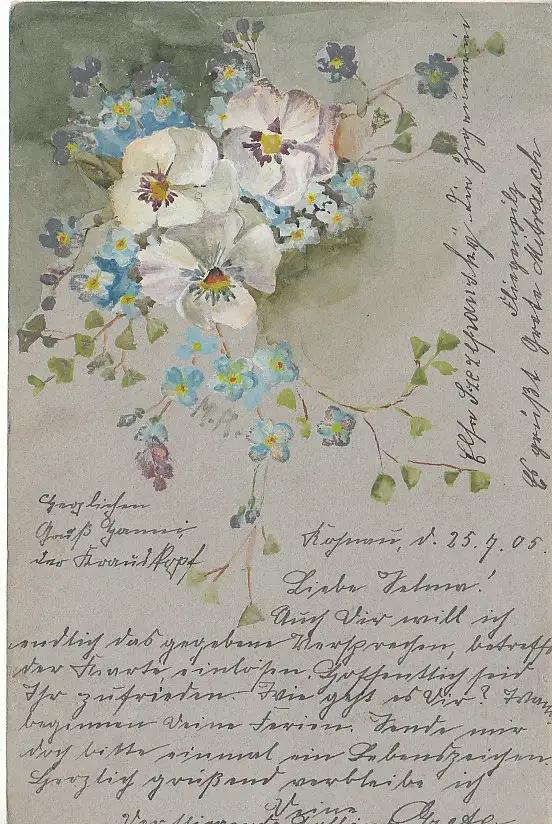 Herzlichen
Gruß Hanni,
der Krauskopf
Kohnau, d. 25.7.05.
Liebe Selma!
Auch Dir will ich
endlich das gegebene Versprechen, betreffs
der Karte einlösen. Hoffentlich seid
Ihr zufrieden. Wie geht es Dir? Wann
beginnen Deine Ferien. Sende mir
doch bitte einmal ein Lebenszeichen.
Herzlich grüßend verbleibe ich
Deine
Grete
Else die Zigeunerin
Fliegenpilz
Es grüßt Grete
M.R.